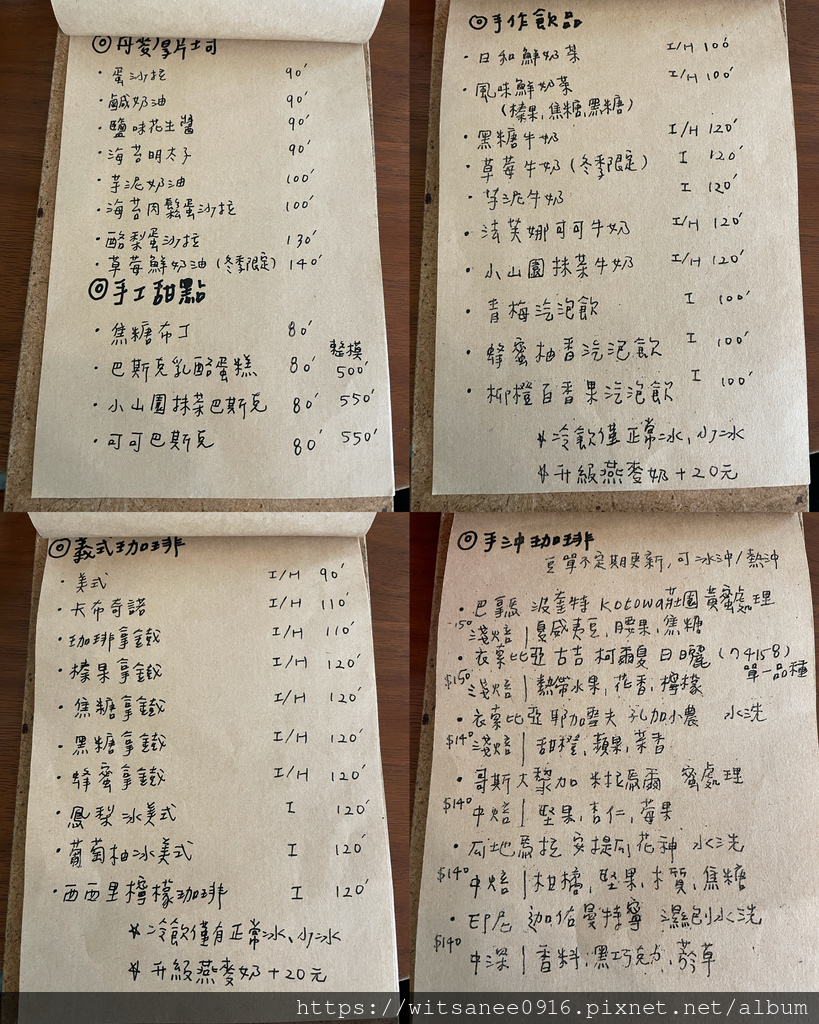 ◎丹麥厚片土司
・蛋沙拉 90'
・鹹奶油 90'
・鹽味花生醬 90'
・海苔明太子 90'
・芋泥奶油 100'
・海苔肉鬆蛋沙拉 100'
・酪梨蛋沙拉 130'
・草莓鮮奶油(冬季限定) 140'
◎手工甜點
・焦糖布丁 80'
整模
・巴斯克乳酪蛋糕 80' 500'
・小山園抹茶巴斯克 80' 550'
・可可巴斯克 80' 550'
◎手作飲品
・日和鮮奶茶 I/H 100'
・風味鮮奶茶 I/H 100'
(榛果,焦糖,黑糖)
・黑糖牛奶 I/H 120'
・草莓牛奶(冬季限定) I 120'
・芋泥牛奶 I 120'
・法芙娜可可牛奶 I/H 120'
・小山園抹茶牛奶 I/H 120'
・青梅汽泡飲 I 100'
・蜂蜜柚香汽泡飲 I 100'
・柳橙百香果汽泡飲 I 100'
*冷飲僅正常冰、少冰
*升級燕麥奶+20元
◎義式珈琲
・美式 I/H 90'
・卡布奇諾 I/H 110'
・珈琲拿鐵 I/H 110'
・榛果拿鐵 I/H 120'
・焦糖拿鐵 I/H 120'
・黑糖拿鐵 I/H 120'
・蜂蜜拿鐵 I/H 120'
・鳳梨冰美式 I 120'
・葡萄柚冰美式 I 120'
・西西里檸檬珈琲 I 120'
*冷飲僅有正常冰、少冰
*升級燕麥奶+20元
◎手沖珈琲
豆單不定期更新,可冰沖/熱沖
・巴拿馬 波奎特 Kotowa莊園黃蜜處理
$150 淺焙|夏威夷豆,腰果,焦糖
・衣索比亞 古吉 柯爾夏 日曬(74158)
單一品種
$150 淺焙|熱帶水果,花香,檸檬
・衣索比亞 耶加雪夫 孔加小農 水洗
$140 淺焙|甜橙,蘋果,茶香
・哥斯大黎加 米拉爾 蜜處理
$140 中焙|堅果,杏仁,莓果
・瓜地馬拉 安提瓜 花神 水洗
$140 中焙|柑橘,堅果,木質,焦糖
・印尼 迦佑曼特寧 濕刨水洗
$140 中深|香料,黑巧克力,菸草
https://witsanee0916.pixnet.net/album